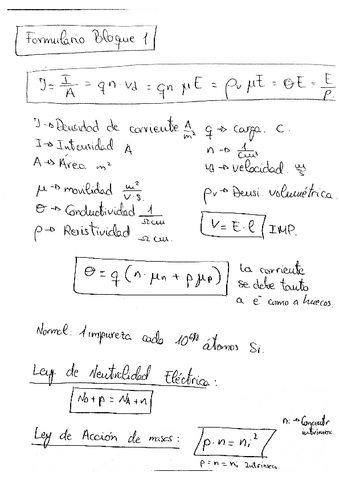 Formulario Bloque 1
J = I/A = qn · vd = qn μE = ρv μE = ΘE = E/ρ
J → Densidad de corriente A/m² q → carga. C.
I → Intensidad A n → 1/cm³
A → Área m² vd → velocidad. m/s
μ → movilidad m²/V·s. ρv → Densi. volumétrica.
Θ → Conductividad 1/Ωcm V = E · l IMP.
ρ → Resistividad
Θ = q (n · μn + p μp) la corriente
se debe tanto
a e⁻ como a huecos.
Normal: 1 impureza cada átomos Si.
Ley de Neutralidad Eléctrica:
ND + p = NA + n
ni →
Ley de Acción de masas: p · n = ni²
p = n = ni Intrínseco